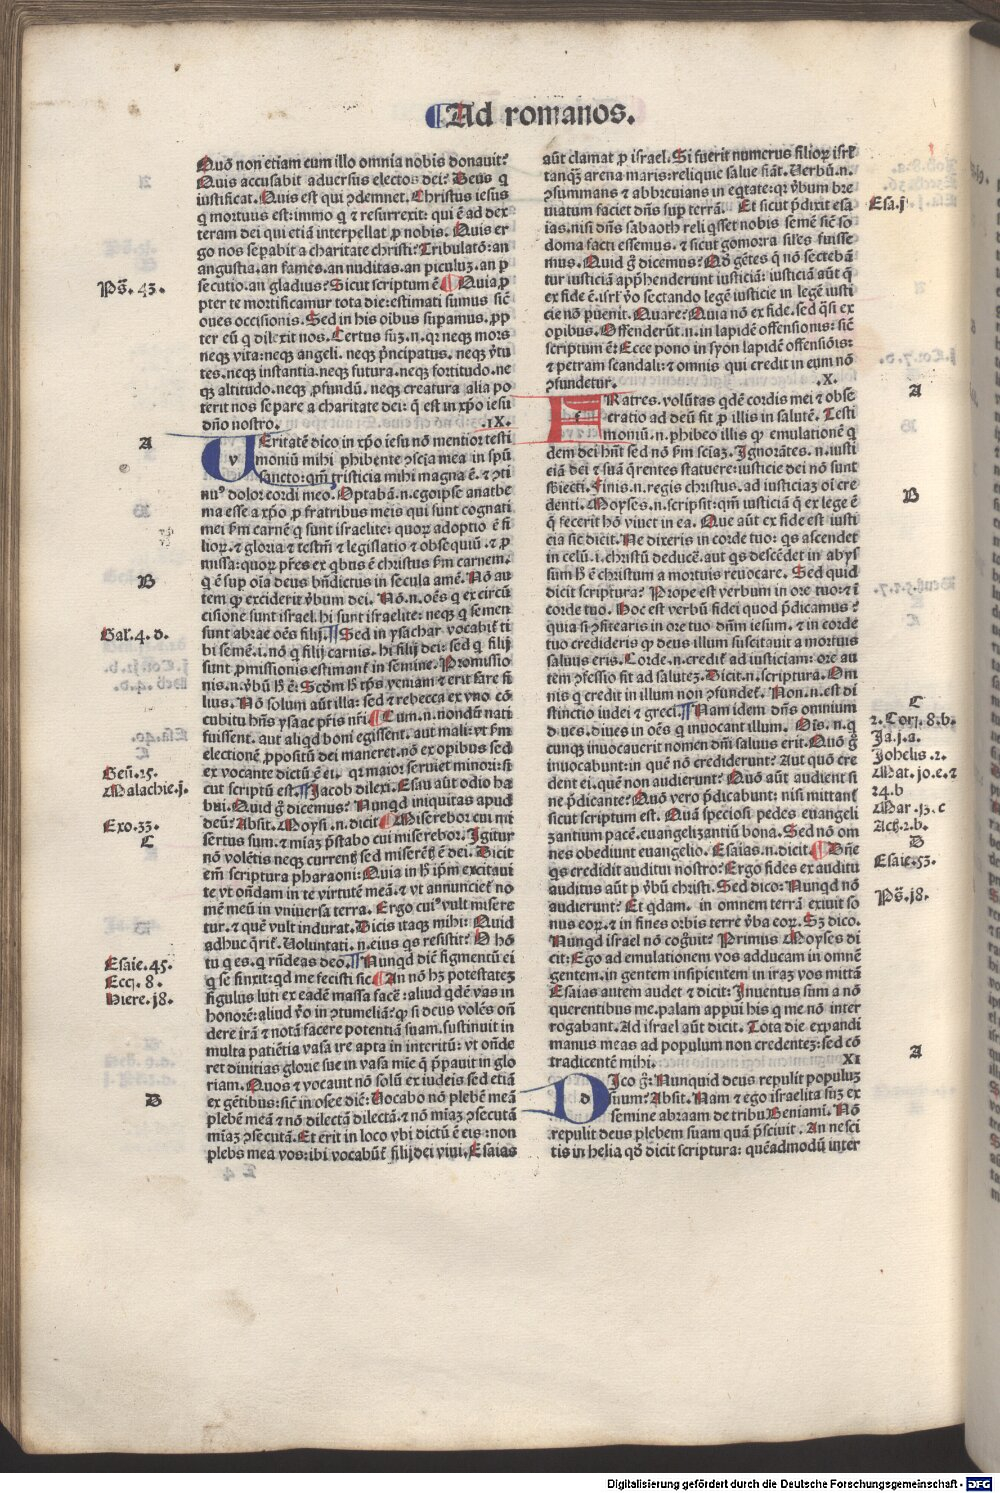 Ad romanos.
Quō non etiam cum illo omnia nobis donauit?
Quis accusabit aduersus electos dei? Deus q
iustificat. Quis est qui ꝯdemnet. Christus iesus
q mortuus est: immo q ⁊ resurrexit: qui ē ad dex
teram dei qui etiā interpellat ꝓ nobis. Quis er
go nos seꝑabit a charitate christi? Tribulatō: an
angustia. an fames. an nuditas. an ꝑiculuꝫ. an ꝑ
Ps̄. 43.
secutio. an gladius? Sicut scriptum ē. Quia ꝓ
pter te mortificamur tota die: estimati sumus sic̄
oues occisionis. Sed in his oibus suꝑamus. ꝓp
ter eū q dilexit nos. Certus suꝫ. n. qꝛ neqꝫ mors
neqꝫ vita: neqꝫ angeli. neqꝫ p̄ncipatus. neqꝫ v̄tu
tes. neqꝫ instantia. neqꝫ futura. neqꝫ fortitudo. ne
qꝫ altitudo. neqꝫ ꝓfundū. neqꝫ creatura alia po
terit nos seꝑare a charitate dei: q̄ est in xp̄o iesu
dn̄o nostro. .IX.
A
VEritatē dico in xp̄o iesu nō mentior testi
v
moniū mihi ꝑhibente ꝯscia mea in spū
sancto: qm̄ tristicia mihi magna ē. ⁊ ꝯti
nuꝰ dolor cordi meo. Optabā. n. egoipse anathe
ma esse a xp̄o ꝓ fratribus meis qui sunt cognati
mei ẜm carnē q sunt israelite: quoꝝ adoptio ē fi
lioꝝ. ⁊ gloria ⁊ testm̄ ⁊ legislatio ⁊ obsequiū. ⁊ ꝓ
missa: quoꝝ pr̄es ex qbus ē christus ẜm carnem.
B
q ē sup oīa deus bn̄dictus in secula amē. Nō au
tem ꝙ exciderit v̄bum dei. Nō. n. oēs q ex circū
cisione sunt israel. hi sunt israelite: neqꝫ q semen
Gal'. 4. d.
sunt abrae oēs filij. Sed in ysachar vocabit̄ ti
bi semē. i. nō q filij carnis. hi filij dei: sed q filij
sunt ꝓmissionis estimant̄ in semine. Promissio
nis. n. v̄bū h̄ ē: Scd̄m h̄ tp̄s veniam ⁊ erit sare fi
lius. Nō solum aūt illa: sed ⁊ rebecca ex vno cō
cubitu hn̄s ysaac pr̄is nr̄i. Cum. n. nondū nati
fuissent. aut aliqd boni egissent. aut mali: vt ẜm
electionē ꝓpositū dei maneret. nō ex opibus sed
Gen̄. 25.
ex vocante dictū ē ei. qꝛ maior seruiet minori: si
Malachie. j.
cut scriptū est. Jacob dilexi. Esau aūt odio ha
bui. Quid ḡ dicemus? Nunqd iniquitas apud
Exo. 33.
deū? Absit. Moysi. n. dicit. Miserebor cui mi
C
sertus sum. ⁊ miaꝫ p̄stabo cui miserebor. Igitur
nō volētis neqꝫ currentꝭ sed miserētꝭ ē dei. Dicit
em̄ scriptura pharaoni: Quia in h̄ ip̄m excitaui
te vt on̄dam in te virtutē meā. ⁊ vt annunciet̄ no
mē meū in vniuersa terra. Ergo cuiꝰ vult misere
tur. ⁊ quē vult indurat. Dicis itaqꝫ mihi: Quid
adhuc q̄rit̄. Voluntati. n. eius qs resistit? O hō
Esaie. 45.
tu q es. q rn̄deas deo. Nunqd diē figmentū ei
Eccj. 8.
q se finxit: qd me fecisti sic. An nō hꝫ potestateꝫ
Hiere. j8.
figulus luti ex eadē massa facē: aliud qdē vas in
honorē: aliud v̄o in ꝯtumeliā? ꝙ si deus volēs on̄
dere irā ⁊ notā facere potentiā suam. sustinuit in
multa patiētia vasa ire apta in interitū: vt on̄de
ret diuitias glorie sue in vasa mie q̄ p̄pauit in glo
riam. Quos ⁊ vocauit nō solū ex iudeis sed etiā
D
ex gētibus: sic̄ in osee diē: Vocabo nō plebē meā
plebē meā ⁊ nō dilectā dilectā. ⁊ nō miaꝫ ꝯsecutā
miaꝫ ꝯsecutā. Et erit in loco vbi dictū ē eis: non
plebs mea vos: ibi vocabūt̄ filij dei viui. Esaias
aūt clamat ꝓ israel. Si fuerit numerus filioꝝ isrl'
tanqꝫ arena maris: reliquie salue fiāt. Verbū. n.
ꝯsummans ⁊ abbreuians in eqtate: qꝛ v̄bum bre
Esa. j
uiatum faciet dn̄s sup terrā. Et sicut p̄dixit esa
ias. nisi dn̄s sabaoth reliqsset nobis semē sic̄ so
doma facti essemus. ⁊ sicut gomorra sil'es fuisse
mus. Quid ḡ dicemus? Qd gētes q̄ nō sectebā
tur iusticiā app̄henderunt iusticiā: iusticiā aūt q̄
ex fide ē. isrl' v̄o sectando legē iusticie in legē iusti
cie nō ꝑuenit. Quare? Quia nō ex fide. sed q̄si ex
opibus. Offenderūt. n. in lapidē offensionis: sic̄
scriptum ē: Ecce pono in syon lapidē offensiōis:
⁊ petram scandali: ⁊ omnis qui credit in eum nō
ꝯfundetur. .X.
A
FRatres. volūtas qdē cordis mei ⁊ obse
f
cratio ad deū fit ꝓ illis in salutē. Testi
moniū. n. ꝑhibeo illis ꝙ emulationē q
dem dei hn̄t sed nō ẜm sciaꝫ. Ignorātes. n. iusti
eiā dei ⁊ suā q̄rentes statuere: iusticie dei nō sunt
sbiecti. Finis. n. regis christus. ad iusticiaꝫ oī cre
B
denti. Moyses. n. scripsit: qm̄ iusticiā q̄ ex lege ē
q̄ fecerit hō viuet in ea. Que aūt ex fide est iusti
cia sic dicit. Ne dixeris in corde tuo: qs ascendet
in celū. i. christū deducē. aut qs descēdet in abys
sum h̄ ē christum a mortuis reuocare. Sed quid
dicit scriptura? Prope est verbum in ore tuo: ⁊ ī
corde tuo. Hoc est verbū fidei quod p̄dicamus?
quia si ꝯfitearis in ore tuo dn̄m iesum. ⁊ in corde
tuo credideris ꝙ deus illum suscitauit a mortuis
saluus eris. Corde. n. credit̄ ad iusticiam: ore au
tem ꝯfessio fit ad saluteꝫ. Dicit. n. scriptura. Om
nis q credit in illum non ꝯfundet̄. Non. n. est di
C
stinctio iudei ⁊ greci. Nam idem dn̄s omnium
2. Corj. 8. b.
diues. diues in oēs q inuocant illum. Oīs. n. q
Ja. j. a.
cunqꝫ inuocauerit nomen dn̄i saluus erit. Quō ḡ
Johelis. 2.
inuocabunt: in quē nō crediderunt? Aut quō cre
Mat. jo. e. ⁊
dent ei. quē non audierunt? Quō aūt audient si
24. b
ne p̄dicante? Quō vero p̄dicabunt: nisi mittant̄
Mar. j3. c
sicut scriptum est. Quā speciosi pedes euangeli
Act. 2. b.
zantium pacē. euangelizantiū bona. Sed nō om
D
nes obediunt euangelio. Esaias. n. dicit. Dn̄e
Esaie. 53.
qs credidit auditui nostro? Ergo fides ex auditu
auditus aūt ꝑ v̄bū christi. Sed dico: Nunqd nō
Ps̄. j8.
audierunt? Et qdam. in omnem terrā exiuit so
nus eoꝝ. ⁊ in fines orbis terre v̄ba eoꝝ. Sꝫ dico.
Nunqd israel nō cogn̄uit? Primus Moyses di
cit: Ego ad emulationem vos adducam in omnē
gentem. in gentem insipientem in iraꝫ vos mittā
Esaias autem audet ⁊ dicit: Inuentus sum a nō
querentibus me. palam apparui his q me nō inter
rogabant. Ad israel aūt dicit. Tota die expandi
manus meas ad populum non credenteꝫ: sed cō
A
tradicentē mihi. XI
DIco ḡ: Nunquid deus repulit populuꝫ
d
suum? Absit. Nam ⁊ ego israelita suꝫ ex
semine abraam de tribu Beniami. Nō
repulit deus plebem suam quā p̄sciuit. An nesci
tis in helia qd dicit scriptura: quēadmodū inter
Digitalisierung gefördert durch die Deutsche Forschungsgemeinschaft - DFG